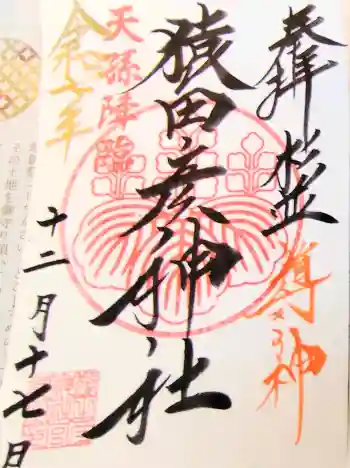 奉拝 杉並
導神
猿田彦神社
天孫降臨
令和七年
十二月十七日